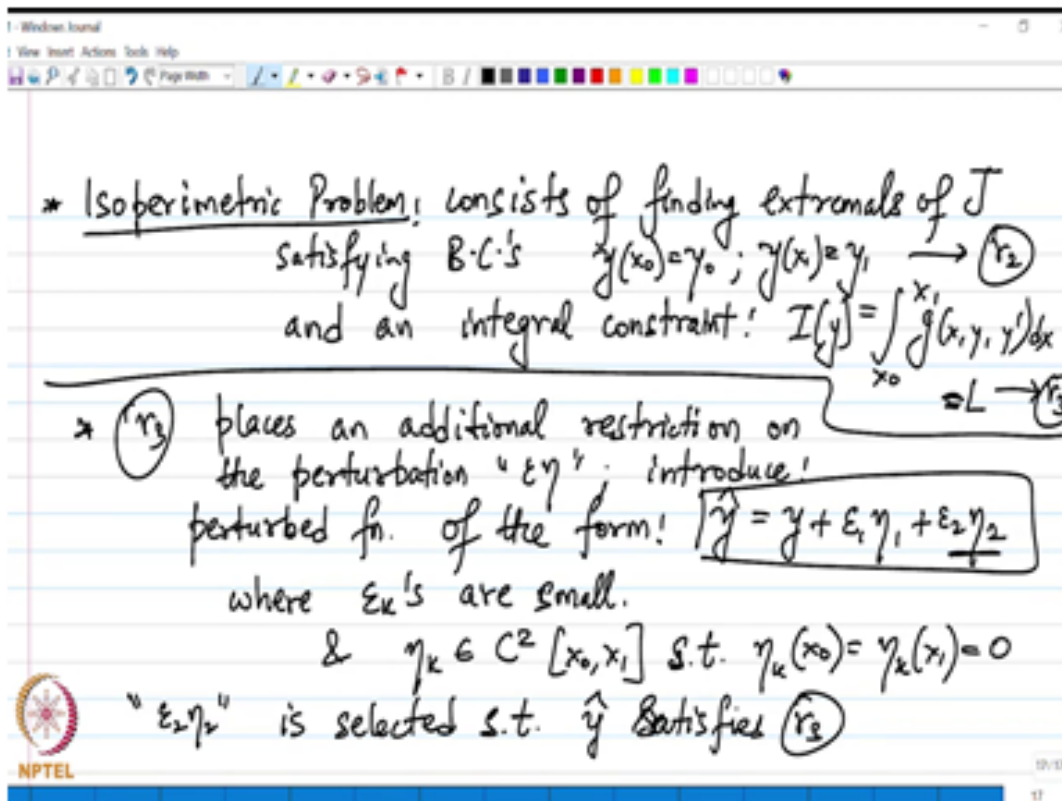 - Windows Journal
View Insert Actions Tools Help
Page Width
* Isoperimetric Problem: consists of finding extremals of J
satisfying B.C.'s y(x₀)=y₀ ; y(x₁)=y₁ → r₂
and an integral constraint: I(y) = ∫ₓ₀^x₁ g(x, y, y')dx
=L → r₃
* r₃ places an additional restriction on
the perturbation "εη" ; introduce:
perturbed fn. of the form: ŷ = y + ε₁η₁ + ε₂η₂
where εₖ's are small.
& ηₖ ∈ C² [x₀, x₁] s.t. ηₖ(x₀) = ηₖ(x₁) = 0
"ε₂η₂" is selected s.t. ŷ satisfies r₃
NPTEL
17